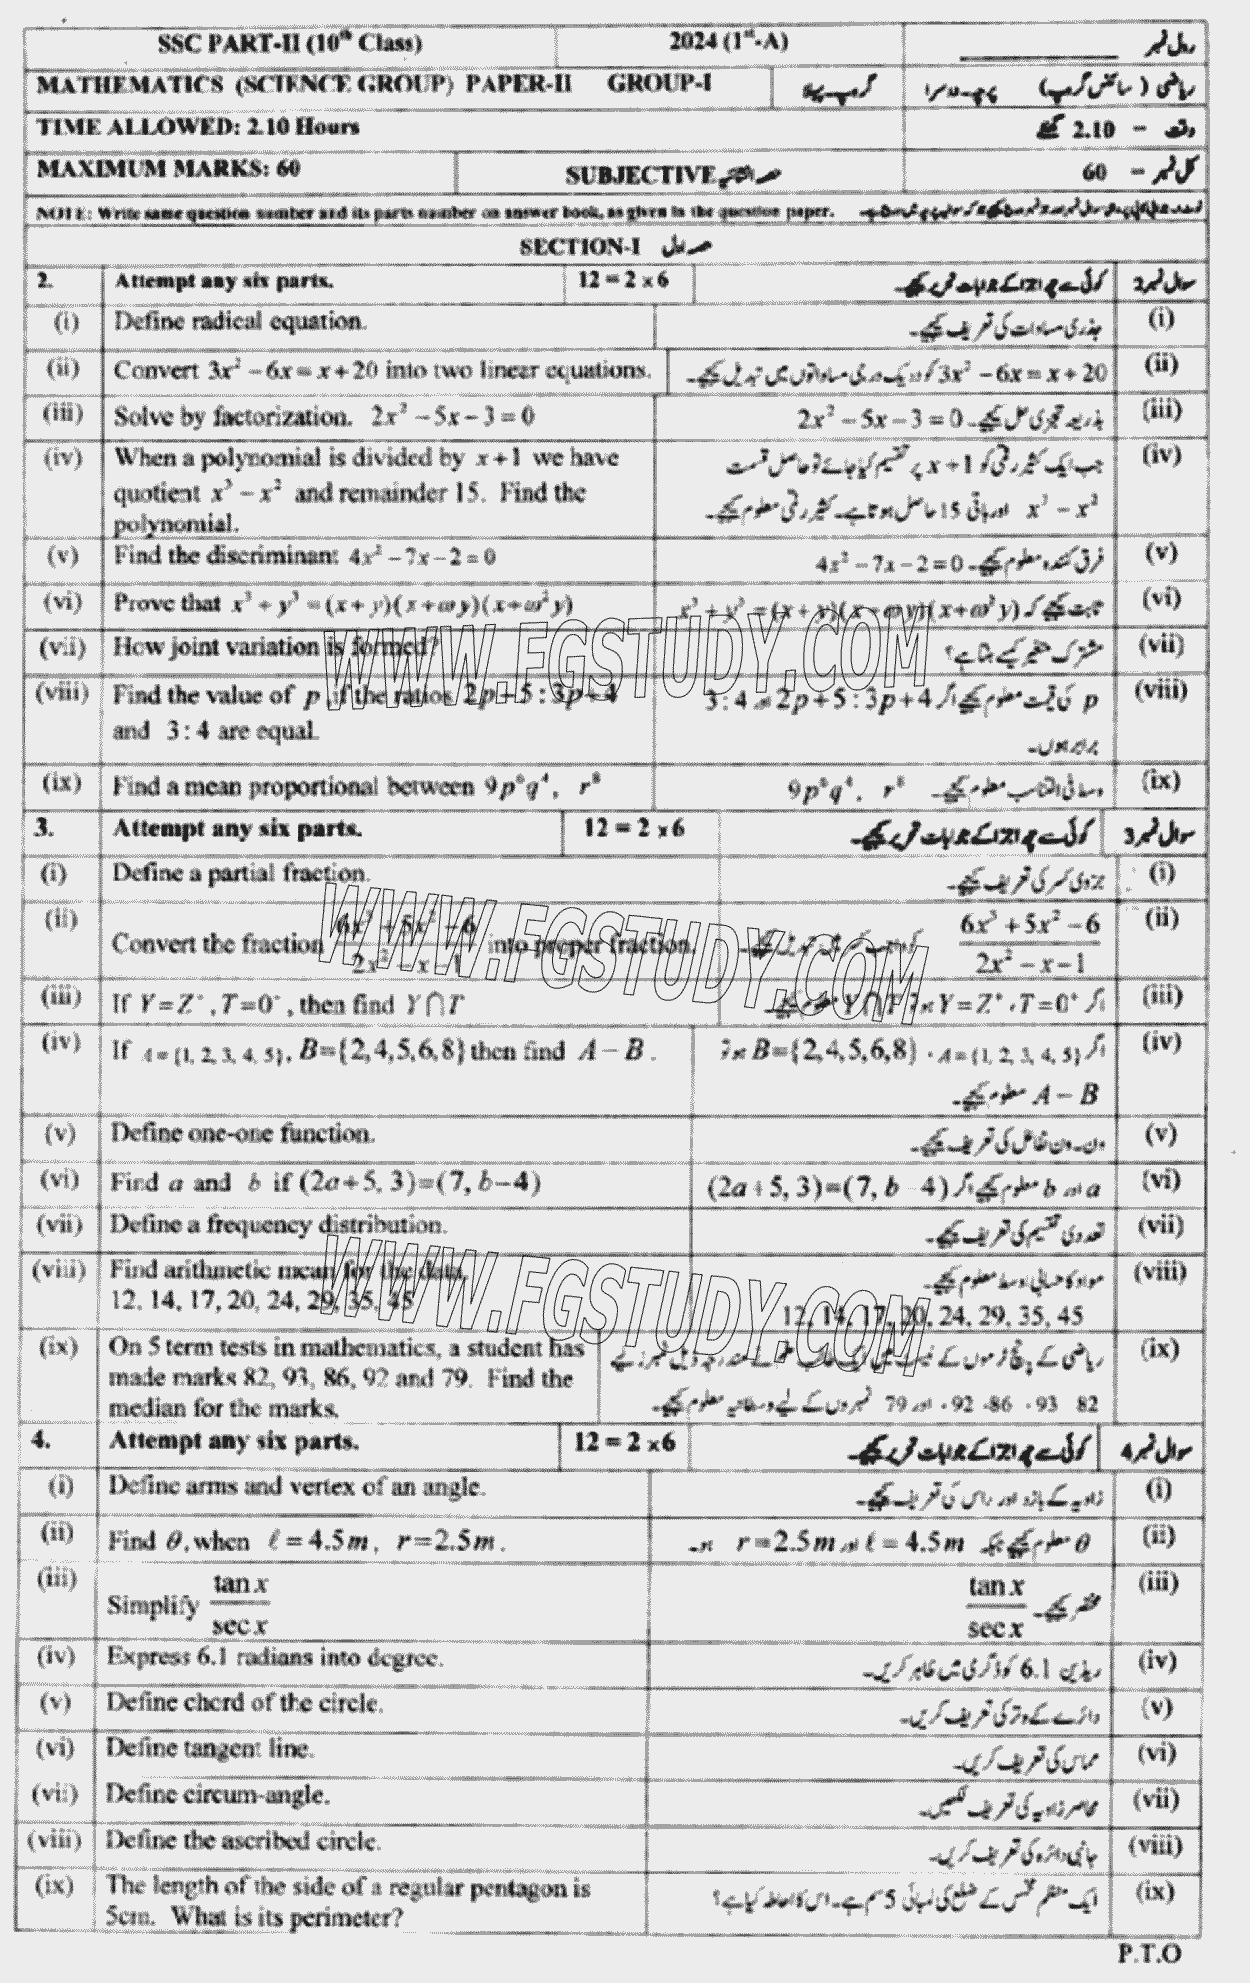 SSC PART-II (10th Class) 2024 (1st-A) رول نمبر ________
MATHEMATICS (SCIENCE GROUP) PAPER-II GROUP-I گروپ پہلا ریاضی (سائنس گروپ) پرچہ دوسرا
TIME ALLOWED: 2.10 Hours وقت – 2.10 گھنٹے
MAXIMUM MARKS: 60 SUBJECTIVE حصہ انشائیہ کل نمبر – 60
NOTE: Write same question number and its parts number on answer book, as given in the question paper.
SECTION-I حصہ اول
2. Attempt any six parts. 12 = 2 × 6 کوئی سے چھ اجزا کے جوابات تحریر کیجیے۔ سوال نمبر 2
(i) Define radical equation. جذری مساوات کی تعریف کیجیے۔ (i)
(ii) Convert 3x² − 6x = x + 20 into two linear equations. 3x² − 6x = x + 20 کو دو یک درجی مساواتوں میں تبدیل کیجیے۔ (ii)
(iii) Solve by factorization. 2x² − 5x − 3 = 0 بذریعہ تجزی حل کیجیے۔ 2x² − 5x − 3 = 0 (iii)
(iv) When a polynomial is divided by x + 1 we have جب ایک کثیر رقمی کو x + 1 پر تقسیم کیا جائے تو حاصل قسمت (iv)
quotient x³ − x² and remainder 15. Find the x³ − x² اور باقی 15 حاصل ہوتا ہے۔ کثیر رقمی معلوم کیجیے۔
polynomial.
(v) Find the discriminant 4x² − 7x − 2 = 0 فرق کنندہ معلوم کیجیے۔ 4x² − 7x − 2 = 0 (v)
(vi) Prove that x³ + y³ = (x + y)(x + ωy)(x + ω²y) ثابت کیجیے کہ x³ + y³ = (x + y)(x + ωy)(x + ω²y) (vi)
WWW.FGSTUDY.COM
(vii) How joint variation is formed? مشترک متغیر کیسے بنتا ہے؟ (vii)
(viii) Find the value of p, if the ratios 2p + 5 : 3p + 4 p کی قیمت معلوم کیجیے اگر 2p + 5 : 3p + 4 اور 3 : 4 (viii)
and 3 : 4 are equal. برابر ہوں۔
(ix) Find a mean proportional between 9p⁶q⁴, r⁸ وسط فی التناسب معلوم کیجیے۔ 9p⁶q⁴, r⁸ (ix)
3. Attempt any six parts. 12 = 2 × 6 کوئی سے چھ اجزا کے جوابات تحریر کیجیے۔ سوال نمبر 3
(i) Define a partial fraction. جزوی کسر کی تعریف کیجیے۔ (i)
(ii) Convert the fraction (6x³ + 5x² − 6)/(2x² − x − 1) into proper fraction. (6x³ + 5x² − 6)/(2x² − x − 1) (ii)
WWW.FGSTUDY.COM
(iii) If Y = Z⁺, T = 0⁺, then find Y ∩ T اگر Y = Z⁺, T = 0⁺ تو Y ∩ T معلوم کیجیے۔ (iii)
(iv) If A = {1, 2, 3, 4, 5}, B = {2,4,5,6,8} then find A − B. اگر A = {1, 2, 3, 4, 5}، B = {2,4,5,6,8} تو (iv)
A − B معلوم کیجیے۔
(v) Define one-one function. ون۔ون تفاعل کی تعریف کیجیے۔ (v)
(vi) Find a and b if (2a + 5, 3) = (7, b − 4) a اور b معلوم کیجیے اگر (2a + 5, 3) = (7, b − 4) (vi)
(vii) Define a frequency distribution. تعددی تقسیم کی تعریف کیجیے۔ (vii)
(viii) Find arithmetic mean for the data. مواد کا حسابی اوسط معلوم کیجیے۔ (viii)
12, 14, 17, 20, 24, 29, 35, 45 12, 14, 17, 20, 24, 29, 35, 45
WWW.FGSTUDY.COM
(ix) On 5 term tests in mathematics, a student has ریاضی کے پانچ ٹرموں کے (ix)
made marks 82, 93, 86, 92 and 79. Find the 82 ، 93 ، 86 ، 92 اور 79 نمبروں کے لیے وسطانیہ معلوم کیجیے۔
median for the marks.
4. Attempt any six parts. 12 = 2 × 6 کوئی سے چھ اجزا کے جوابات تحریر کیجیے۔ سوال نمبر 4
(i) Define arms and vertex of an angle. زاویہ کے بازو اور راس کی تعریف کیجیے۔ (i)
(ii) Find θ, when ℓ = 4.5m, r = 2.5m. θ معلوم کیجیے جبکہ ℓ = 4.5m اور r = 2.5m ہو۔ (ii)
(iii) Simplify tan x / sec x مختصر کیجیے۔ tan x / sec x (iii)
(iv) Express 6.1 radians into degree. 6.1 ریڈین کو ڈگری میں ظاہر کریں۔ (iv)
(v) Define chord of the circle. دائرے کے وتر کی تعریف کریں۔ (v)
(vi) Define tangent line. مماس کی تعریف کریں۔ (vi)
(vii) Define circum-angle. محاصر زاویہ کی تعریف لکھیں۔ (vii)
(viii) Define the ascribed circle. جانبی دائرہ کی تعریف کریں۔ (viii)
(ix) The length of the side of a regular pentagon is ایک منظم مخمس کے ضلع کی لمبائی 5 سم ہے۔ اس کا احاطہ کیا ہے؟ (ix)
5cm. What is its perimeter?
P.T.O